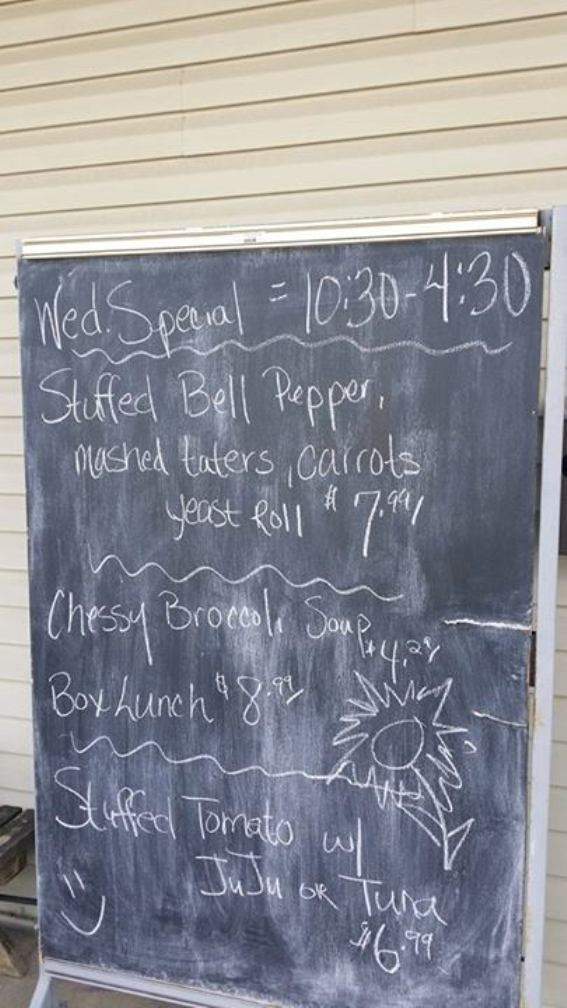 Wed. Special = 10:30-4:30
Stuffed Bell Pepper,
mashed taters, carrots
yeast Roll $7.99
Chessy Broccoli Soup $4.29
Box Lunch $8.99
Stuffed Tomato w/
JuJu or Tuna
$6.99